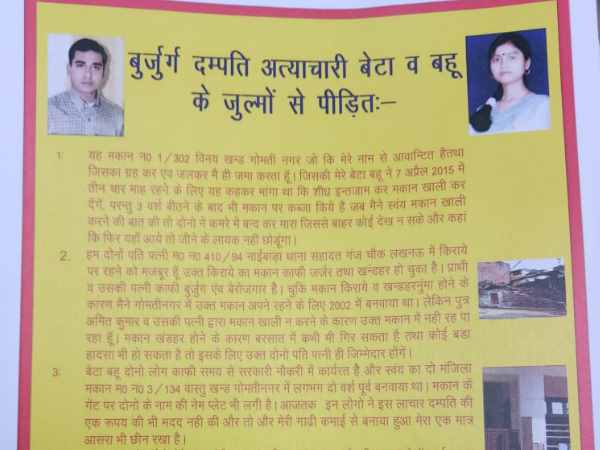 बुर्जुर्ग दम्पति अत्याचारी बेटा व बहू
के जुल्मों से पीड़ितः–
1. यह मकान न0 1/302 विनय खन्ड गोमती नगर जो कि मेरे नाम से आवान्टित हैतथा
जिसका ग्रह कर एंव जलकर मै ही जमा करता हूँ। जिसकी मेरे बेटा बहू ने 7 अप्रैल 2015 में
तीन चार माह रहने के लिए यह कहकर मांगा था कि शीघ्र इन्तजाम कर मकान खाली कर
देंगें, परन्तु 3 वर्श बीतने के बाद भी मकान पर कब्जा किये है जब मैने स्वंय मकान खाली
करने की बात की तो दोनो ने कमरे मे बन्द कर मारा जिससे बाहर कोई देख न सके और कहां
कि फिर यहाँ आये तो जीने के लायक नही छोडूंगा।
2. हम दोनों पति पत्नी म0 न0 410/94 नाईबाड़ा थाना सहादत गंज चौक लखनऊ में किराये
पर रहने को मजबूर हूँ उक्त किराये का मकान काफी जर्जर तथा खन्डहर हो चुका है। प्रार्थी
व उसकी पत्नी काफी बुर्जुग एंव बेरोजगार है। चुकि मकान किराये व खन्डहरनुमा होने के
कारण मैने गोमतीनगर में उक्त मकान अपने रहने के लिए 2002 में बनवाया था। लेकिन पुत्र
अमित कुमार व उसकी पत्नी द्वारा मकान खाली न करने के कारण उक्त मकान में नही रह पा
रहा हूँ। मकान खंडहर होने के कारण बरसात में कभी भी गिर सकता है तथा कोई बडा
हादसा भी हो सकता है तो इसके लिए उक्त दोनो पति पत्नी ही जिम्मेदार होंगें।
3. बेटा बहू दोनो लोग काफी समय से सरकारी नौकरी में कार्यरत है और स्वंय का दो मंजिला
मकान म0 न0 3/134 वास्तु खन्ड गोमतीनगर में लगभग दो वर्श पूर्व बनवाया था। मकान के
गेंट पर दोनो के नाम की नेम प्लेट भी लगी है। आजतक इन लोगो ने इस लाचार दम्पति की
एक रूपय की भी मदद नही की और तो और मेरी गाढी कमाई से बनाया हुआ मेरा एक मात्र
आसरा भी छीन रखा है।